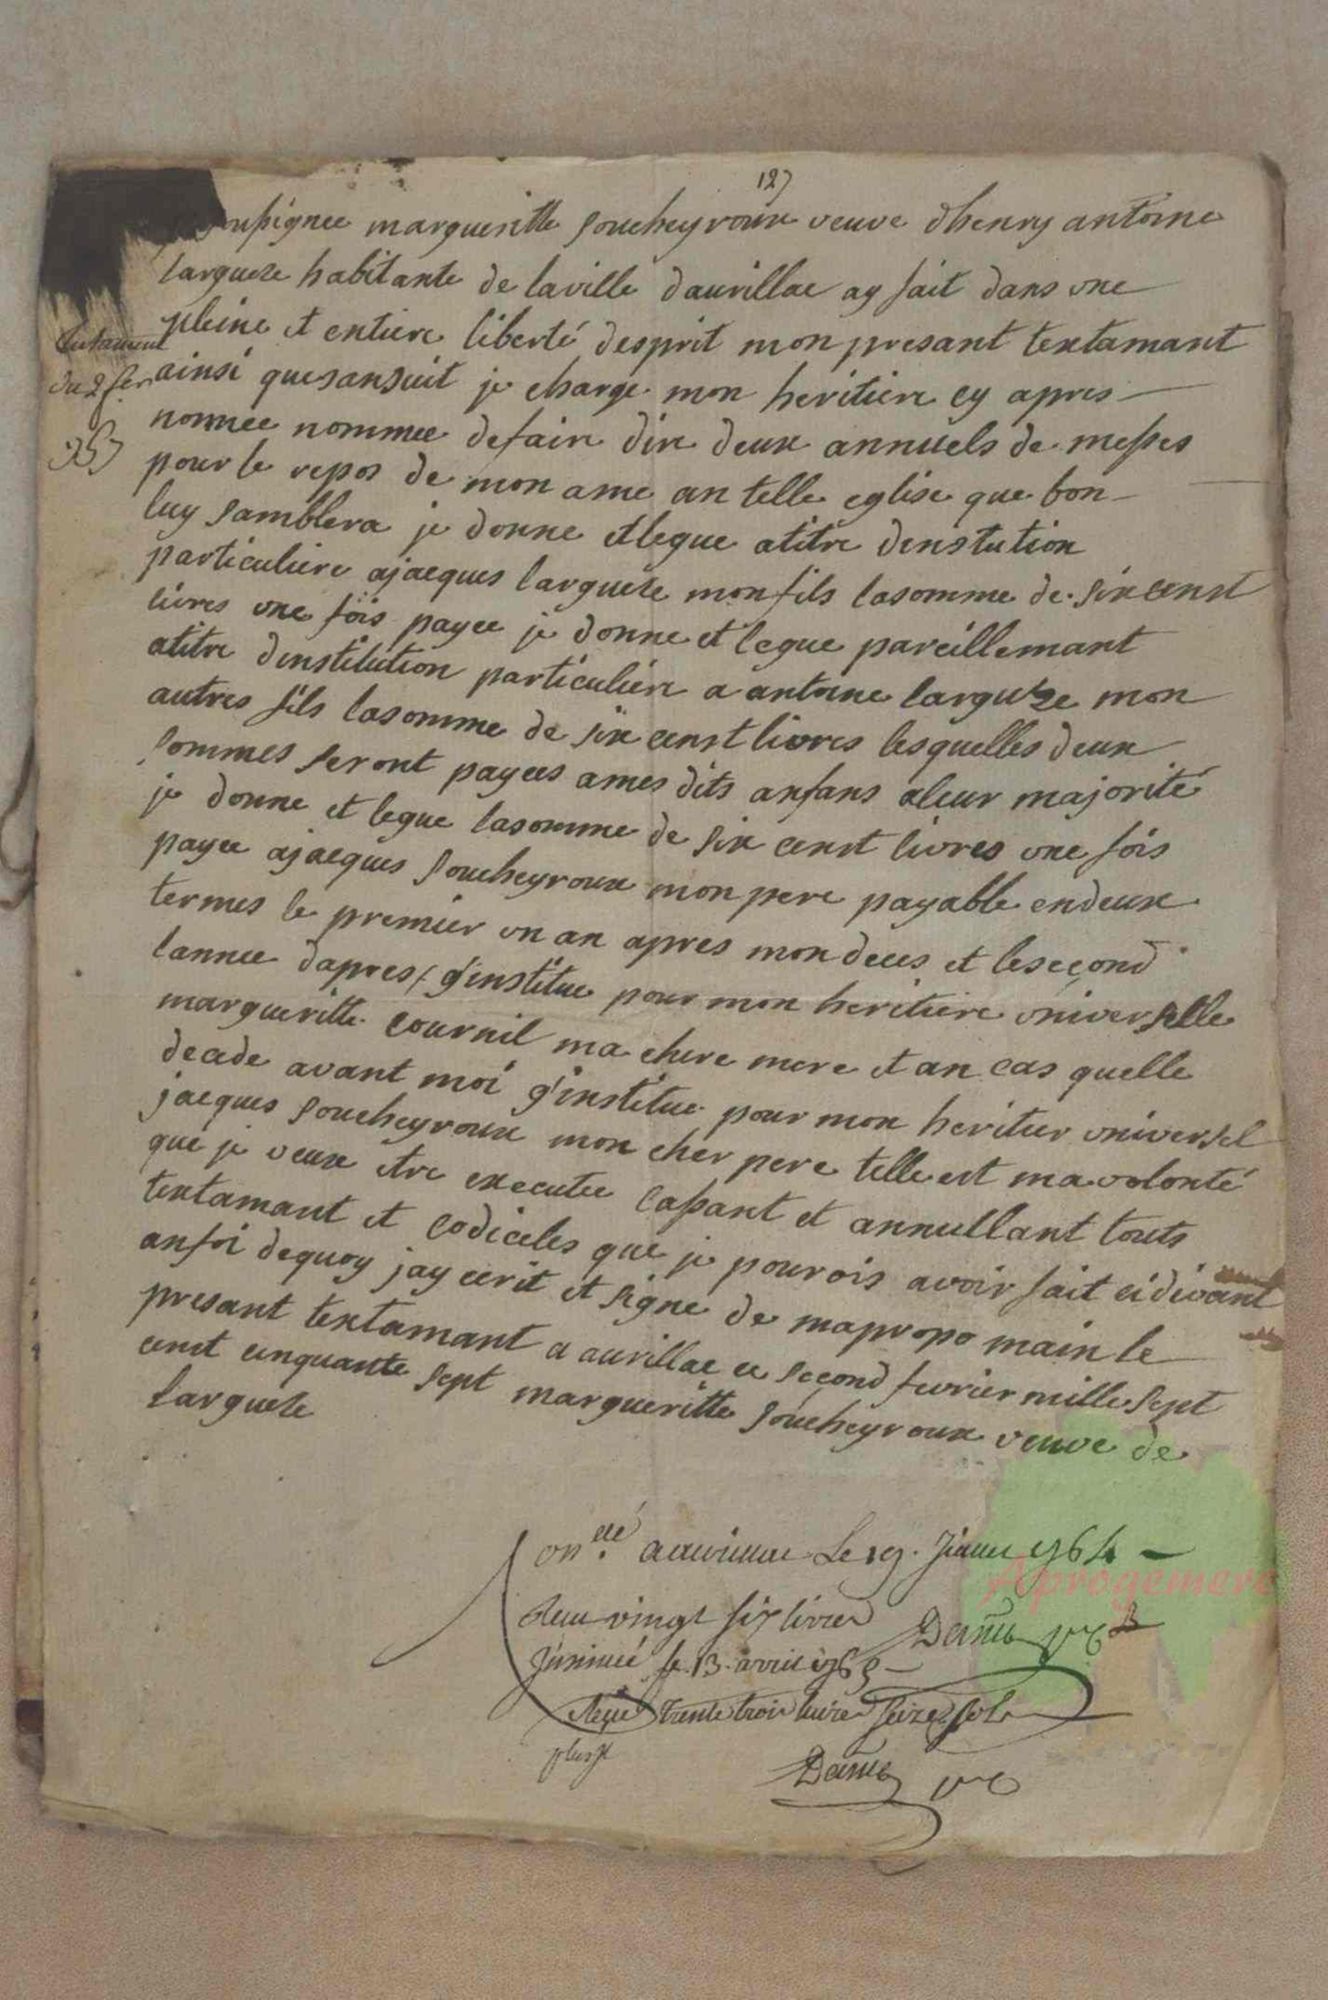 127
soussignee margueritte soucheyroux veuve dhenry antoine
larguese habitante de la ville daurillac ay fait dans une
pleine et entiere liberté desprit mon presant textamant
ainsi quesansuit je charge mon heritiere cy apres
nommee nommee defaire dire deux annuels de messes
pour le repos de mon ame an telle eglise que bon
luy samblera je donne et legue a titre denstution
particuliere a jacques larguese mon fils la somme de six censt
livres une fois payee je donne et legue pareillemant
a titre dinstitution particuliere a antoine larguese mon
autres fils la somme de six censt livres lesquelles deux
sommes seront payees a mes dits anfans a leur majorité
je donne et legue la somme de six censt livres une fois
payee a jacques soucheyroux mon pere payable en deux
termes le premier un an apres mon deces et le second
lannee dapres / g'institue pour mon heritiere universelle
margueritte cournil ma chere mere et an cas quelle
decede avant moi g'institue pour mon heritier universel
jacques soucheyroux mon cher pere telle est ma volonté
que je veux etre executee cassant et annullant touts
textamant et codiceles que je pourois avoir fait ci divant
anfoi dequoy jay ecrit et signe de ma propo main le
presant textamant a aurillac ce second fevrier mille sept
censt cinquante sept margueritte soucheyroux veuve de
larguese
testament
du 2 fer
957
con.elé a aurillac Le 19. Janer 1764
Reçu vingt six livres
Insinué le 13. avril 1765
Reçu trente trois livres seize sols
plus
Aprogemere